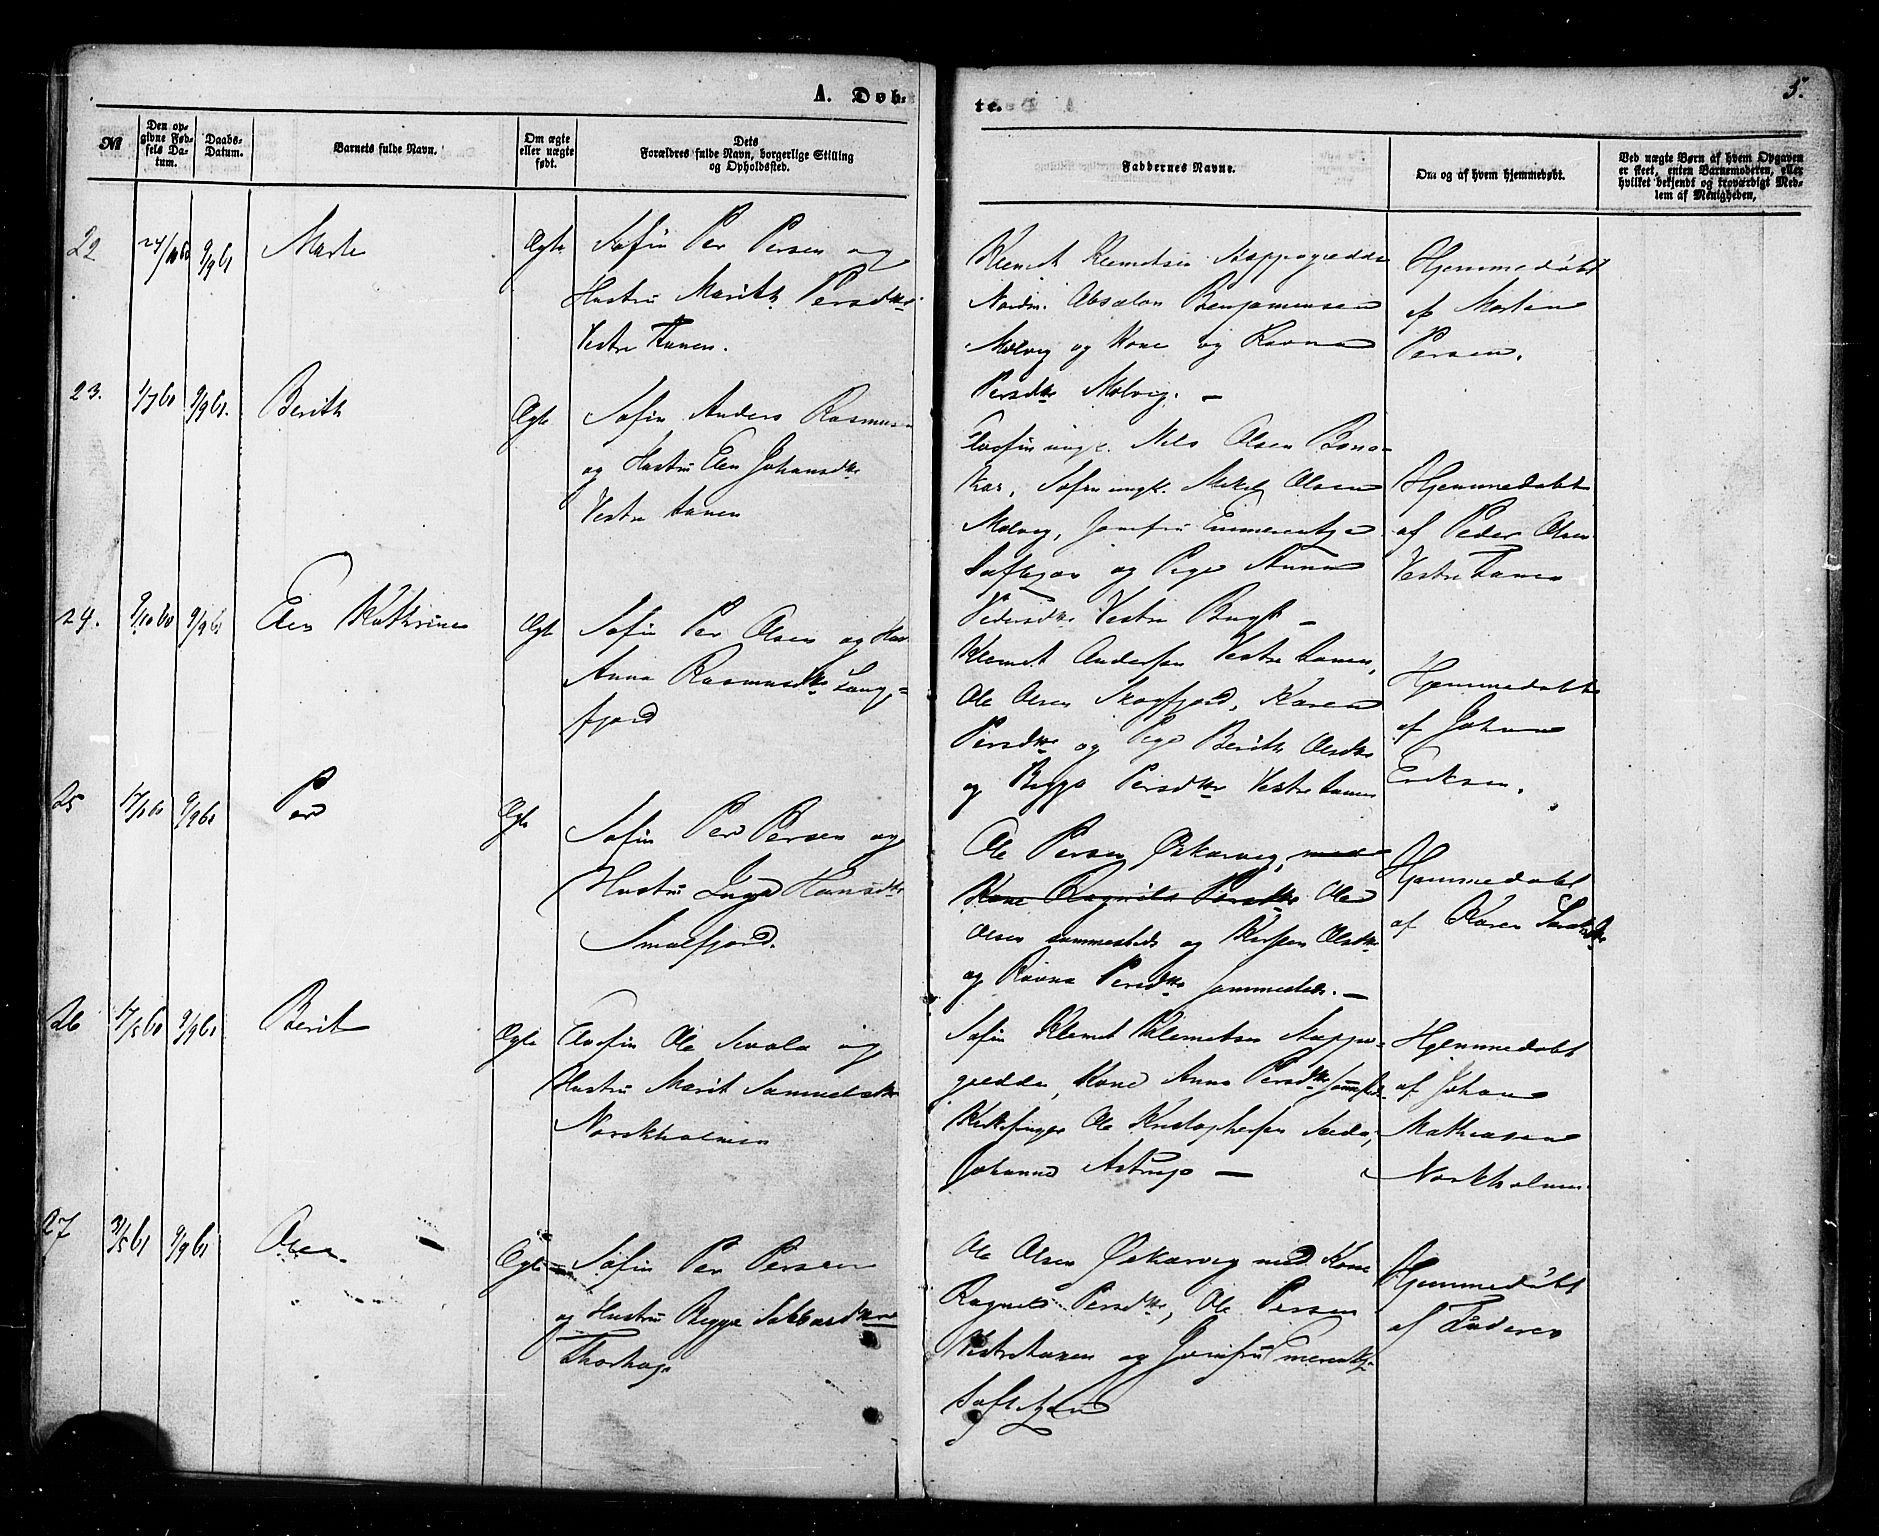 A. Døb-
te.
5.
№
Den op-
givne Fød-
sels Da-
tum.
Daabs-
Datum.
Barnets fulde Navn.
Om ægte
eller uægte
født.
Dets
Forældres fulde Navn, borgerlige Stilling
og Opholdssted.
Faddernes Navne.
Om og af hvem hjemmedøbt.
Ved uægte Børn af hvem Opgaven
er skeet, enten Barnemoderen, eller
hvilket bekjendt og troværdigt Med-
lem af Menigheden,
22
9/9 61
Marte
Ægte
Søfin Per Persen og
Hustru Marith Persdtr
Vestre Tanen.
Klemet Klemetsen Stappogiedde
Absalon Benjaminsen
Molvig og Kone og Ravna
Persdtr Molvig. —
Hjemmedøbt
af Morten
Persen.
23.
1/7 61
9/9 61.
Berith
Ægte
Søfin Anders Rasmus
og Hustru Elen Johansdtr
Vestre Tanen
Elvefin ungk. Nils Olsen Bona-
kas, Søfin ungk. Mikel Olsen
Molvig, Jomfru Emmerentze
og Pige Anna
Pedersdtr Vestre
Hjemmedøbt
af Peder Olsen
Vestre Tanen
24.
9/10 60
9/9 61
Elen Kathrine
Ægte
Søfin Per Olsen og
Anna Rasmusdtr Lang-
fjord
Klemet Andersen Vestre Tanen,
Ole Olsen Skogfjord, Karen
Persdtr og Pige Berith Olsdtr
og Bigge Persdtr Vestre Tanen
Hjemmedøbt
af Johan
Eriksen.
25
9/9 61
Per
Ægte
Søfin Per Persen og
Hustru Inga Hansdtr
Smalfjord.
Ole Persen Øskarvig, med
Kone Ragnild Persdtr Ole
Olsen sammesteds og Kirsten Olsdtr
og Ravna Persdtr sammesteds. —
Hjemmedøbt
af Karen
26
17/5 61
9/9 61
Berit
Ægte
Elvefin Ole og
Hustru Marit Samuelsdtr
Norskholmen
Søfin Klemet Klemetsen Stappo-
giedde, Kone Anna Persdtr
Ole Kristophersen
Johanne Astrup —
Hjemmedøbt
af Johan
Mathiasen
Norskholmen
27
3/5 61
9/9 61
Ægte
Søfin Per Persen
og Hustru Bigga
Ole Olsen Øskarvig med Kone
Ragnild Persdtr, Ole Persen
Vestretanen og Jomfru Emerentze
Hjemmedøbt
af Faderen